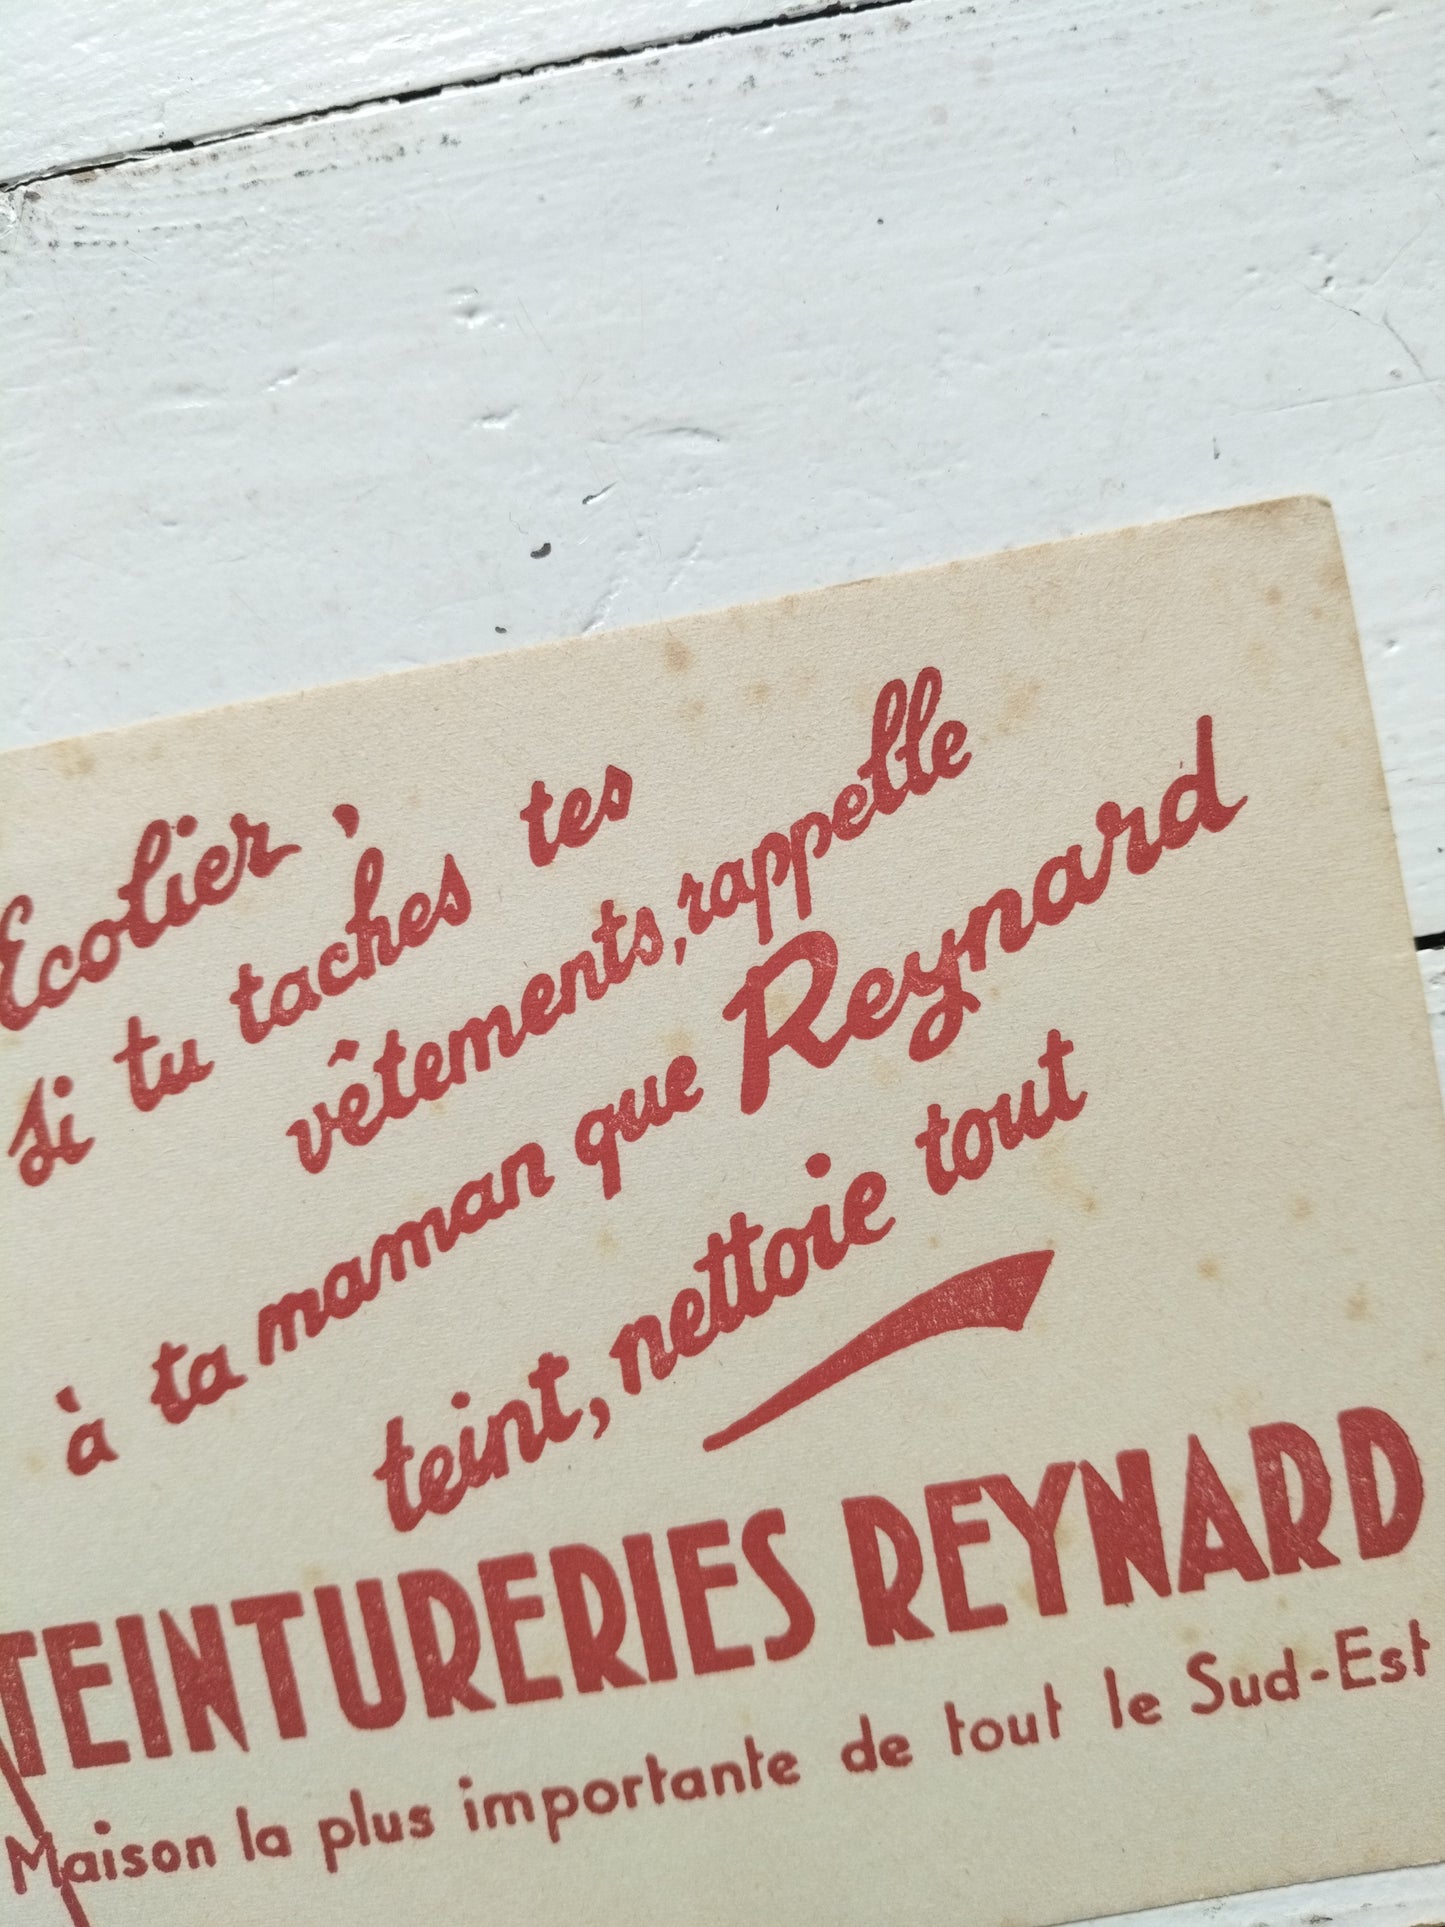 Ecolier,
si tu taches tes
vêtements, rappelle
à ta maman que Reynard
teint, nettoie tout
TEINTURERIES REYNARD
Maison la plus importante de tout le Sud-Est